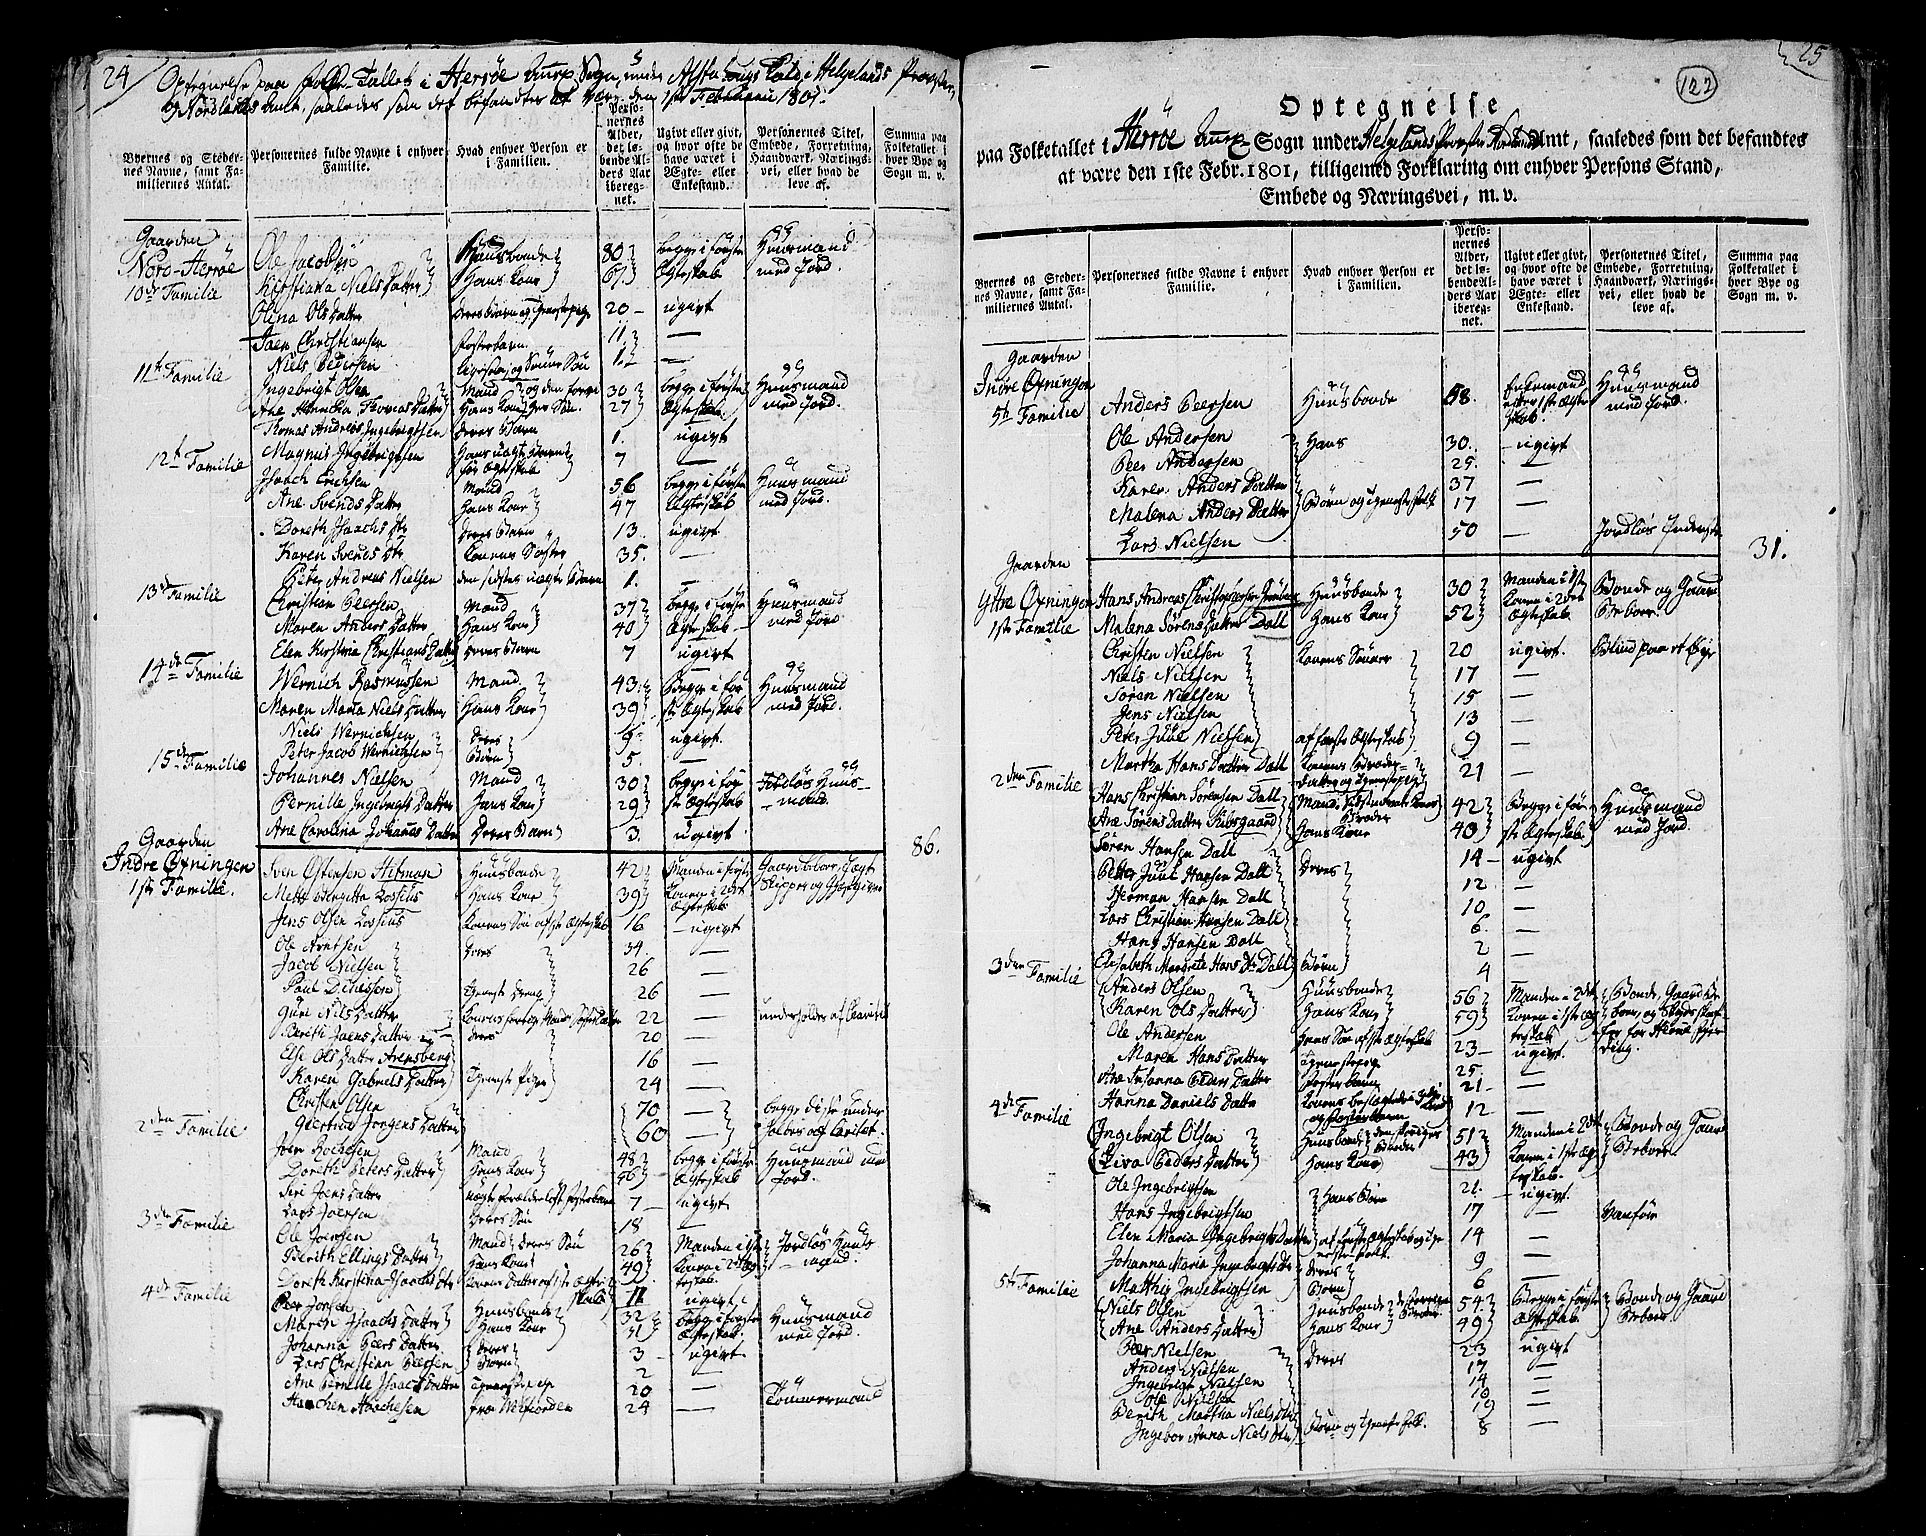 24
Optegnelse paa Folke-Tallet i Herrøe Annex Sogn, under Alstahougs Gield i Helgelands Provstie,
Nordlands Amt, saaledes som det befandtes at være den 1ste Februarii 1801.
Byernes og Stedernes Navne, samt Familiernes Antal.
Personernes fulde Navne i enhver Familie.
Hvad enhver Person er i Familien.
Personernes Alder, det løbende Alders Aar iberegnet.
Ugivt eller givt, og hvor ofte de have været i Ægte- eller Enkestand.
Personernes Titel, Embede, Forretning, Haandværk, Næringsvei, eller hvad de leve af.
Summa paa Folketallet i hver Bye og Sogn m. v.
Gaarden
Nord-Herrøe
10de Familie
Ole Jacobsen Huusbonde 80 begge i første Huusmand
Kirstiana Niels Datter Hans Kone 67 Ægteskab med Jord.
Olina Ols Datter Deres Barn og tienestepige 20 ugivt
Joen Christiansen Fosterbarn 11 —
Niels Pedersen 1 —
11te Familie
Ingebrigt Olsen Mand 30 begge i første Huusmand
Ane Annicka Thomas Datter Hans Kone 27 Ægteskab med Jord.
Thomas Andreas Ingebrigtsen Deres Barn 1. ugivt
Magnus Ingebrigtsen Hans uægte Barn før Ægteskab 7 —
12te Familie
Isaach Erichsen Mand 56 begge i første Huusmand
Ane Svends Datter Hans Kone 47 Ægteskab med Jord.
Doreth Isaachs Dtr Deres Barn 13. ugivt
Karen Svends Dtr Konens Søster 35. —
Peter Andreas Nielsen den sidstes uægte Barn 1. —
13de Familie
Christian Peersen Mand 37 begge i første Huusmand
Maren Anders Datter Hans Kone 40 Ægteskab med Jord.
Elen Kirstina Christians Datter Deres Barn 7 ugivt
14de Familie
Wernich Rasmussen Mand. 43 Begge i før Huusmand
Maren Maria Niels Datter Hans Kone 39 ste Ægteskab med Jord.
Niels Wernichsen Deres 9 ugivt.
Peter Jacob Wernichsen Børn 5. —
15de Familie
Johannes Nielsen Mand 30 begge i før Jordløs Huus-
Pernille Ingebrigts Datter Hans Kone 29 ste Ægteskab mand.
Ane Carolina Johannes Datter Deres Barn 3. ugivt
86.
Gaarden
Indre Øxningen
1ste Familie.
Sven Østensen Hitman Huusbonde 42 Manden i første Gaardbeboer, Jagt
Mette Birgitta Lossius Hans Kone 39 Konen i 2det Ægteskab Skipper og
Jens Olsen Lossius Konens Søn af 1ste Ægteskab 16 ugivt
Ole Arntsen Deres 34. —
Jacob Nielsen 26 —
Paul Tieneste Dreng 26 —
Guri Nils Datter 22 — underholdes af
Berith Joens Datter Deres 20 —
Else Ols Datter Arensberg 16 —
Karen Gabriels Datter Tieneste Piger 24 —
Christen Olsen 70 — begge disse under
Giertrud Jørgens Datter 60 — holdes af
2den Familie
Joen Mand 48 begge i første Huusmand med
Doreth Peters Datter Hans Kone 46 Ægteskab Jord.
Siri Joens Datter 7 ugivt
Lars Joensen Deres Søn 18 —
3die Familie
Ole Joensen Mand Deres Søn 26 Manden i 1ste Jordløs Huus-
Berith Ellings Datter Hans Kone 49 Konen i 2det Ægteskab mand.
Doreth Kirstina Isaachs Dtr Konens Datter af 1ste Ægteskab 11 ugivt
4de Familie
Peer Jonsen Huusbonde 32 begge i første Huusmand
Maren Isaachs Datter Hans Kone 31 Ægteskab med Jord.
Johanna Peers Datter Deres 3 ugivt
Lars Christian Peersen Børn 2 —
Ane Pernille Isaachs Datter Tienestepige 20 —
fra 24 — Tømmermand
25
122
Optegnelse
paa Folketallet i Herrøe Annex Sogn under Helgelands Provstie Nordlands Amt, saaledes som det befandtes
at være den 1ste Febr. 1801, tilligemed Forklaring om enhver Persons Stand,
Embede og Næringsvei, m. v.
Byernes og Stedernes Navne, samt Familiernes Antal.
Personernes fulde Navne i enhver Familie.
Hvad enhver Person er i Familien.
Personernes Alder, det løbende Alders Aar iberegnet.
Ugivt eller givt, og hvor ofte de have været i Ægte- eller Enkestand.
Personernes Titel, Embede, Forretning, Haandværk, Næringsvei, eller hvad de leve af.
Summa paa Folketallet i hver Bye og Sogn m. v.
Gaarden
Indre Øxningen
5te Familie
Anders Peersen Huusbonde 58. Enkemand efter 1ste Ægteskab Huusmand med Jord.
Ole Andersen Hans 30. ugivt
Peer Andersen 25. —
Karen Anders Datter 37 —
Malena Anders Datter Børn og tieneste folk 17 —
Lars Nielsen 50 — Jordløs Inderste
31.
Gaarden
Yttre Øxningen
1ste Familie
Hans Andreas Huusbonde 30 Manden i 1ste Bonde og Gaard
Malena Sørens Datter Dall Hans Kone 52 Konen i 2det Ægteskab Beboer.
Christen Nielsen Konens Sønner 20 ugivt. Blind paa et Øye
Niels Nielsen 17 —
Søren Nielsen 15 —
Jens Nielsen 13 —
Peter Juul Nielsen af første Ægteskab 9 —
Martha Hans Datter Dall Konens Broder-Datter og Tienestepige 21 —
2den Familie
Hans Christian Sørensen Dall Mand, Konens Broder 42 Begge i før Huusmand
Ane Sørens Datter Hans Kone 40 ste Ægteskab med Jord.
Søren Hansen Dall 14 ugivt
Petter Juul Hansen Dall Deres 12 —
Herman Hansen Dall 10 —
Lars Christian Hansen Dall 6 —
Hans Hansen Dall 2 —
Elisabeth Margrete Hans Dtr Dall Børn 4 —
3die Familie
Anders Olsen Huusbonde 56 Manden i 2det Bonde, Gaard Be
Karen Ols Datter Hans Kone 59 Konen i 1ste Ægteskab boer, og
Ole Andersen Hans Søn af 1ste Ægteskab 23 ugivt
Maren Hans Datter Tienestepige 25. —
Ane Susanna Peders Datter Fosterbarn 21 —
Hanna Daniels Datter 12 —
4de Familie
Ingebrigt Olsen Huusbonde 51 Manden i 2det Bonde og Gaard
Liva Peders Datter Hans Kone 43 Konen i 1ste Ægteskab. Beboer
Ole Ingebrigtsen 21. ugivt.
Hans Ingebrigtsen Hans Børn 17 — Vanfør
Elen Maria Ingebrigts Datter 14 —
Johanna Maria Ingebrigts Dtr Deres 9 —
Matthis Ingebrigtsen Børn 6 —
5te Familie
Niels Olsen Huusbonde 54 Begge i første Bonde og Gaard
Ane Anders Datter Hans Kone 49 Ægteskab. Beboer.
Peer Nielsen Deres 23 ugivt
Anders Nielsen 17 —
Ingebrigt Nielsen 14 —
Ole Nielsen 10 —
Berith Martha Niels Dtr 19 —
Ingebor Anna Niels Dtr Børn og tieneste folk. 8 —